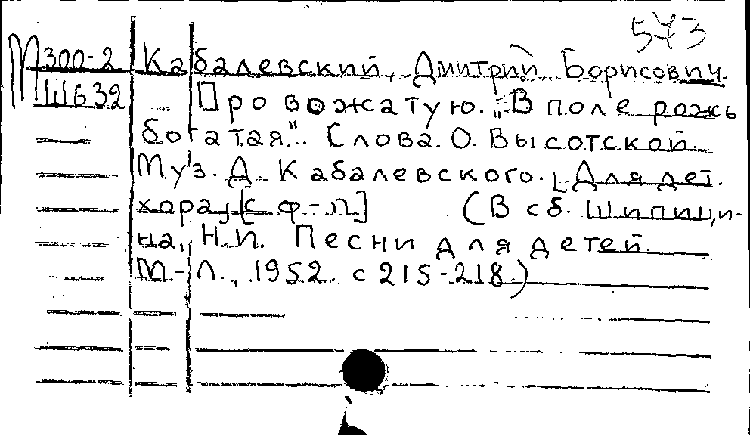 573
М 300-2 Кабалевский, Дмитрий Борисович.
Ш632 Про вожатую. "В поле рожь
богатая". Слова О. Высотской.
Муз. Д. Кабалевского. [Для дет.
хора] [с ф-п] (В сб. Шипици-
на, Н.И. Песни для детей.
М.-Л., 1952. с 215-218.)